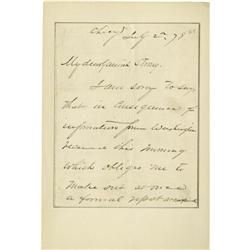 Chicago July 2nd, 78
My dear General Strong.
I am sorry to say
that in consequence of
information from Washington
received this morning
which obliges me to
make out at once
a formal report